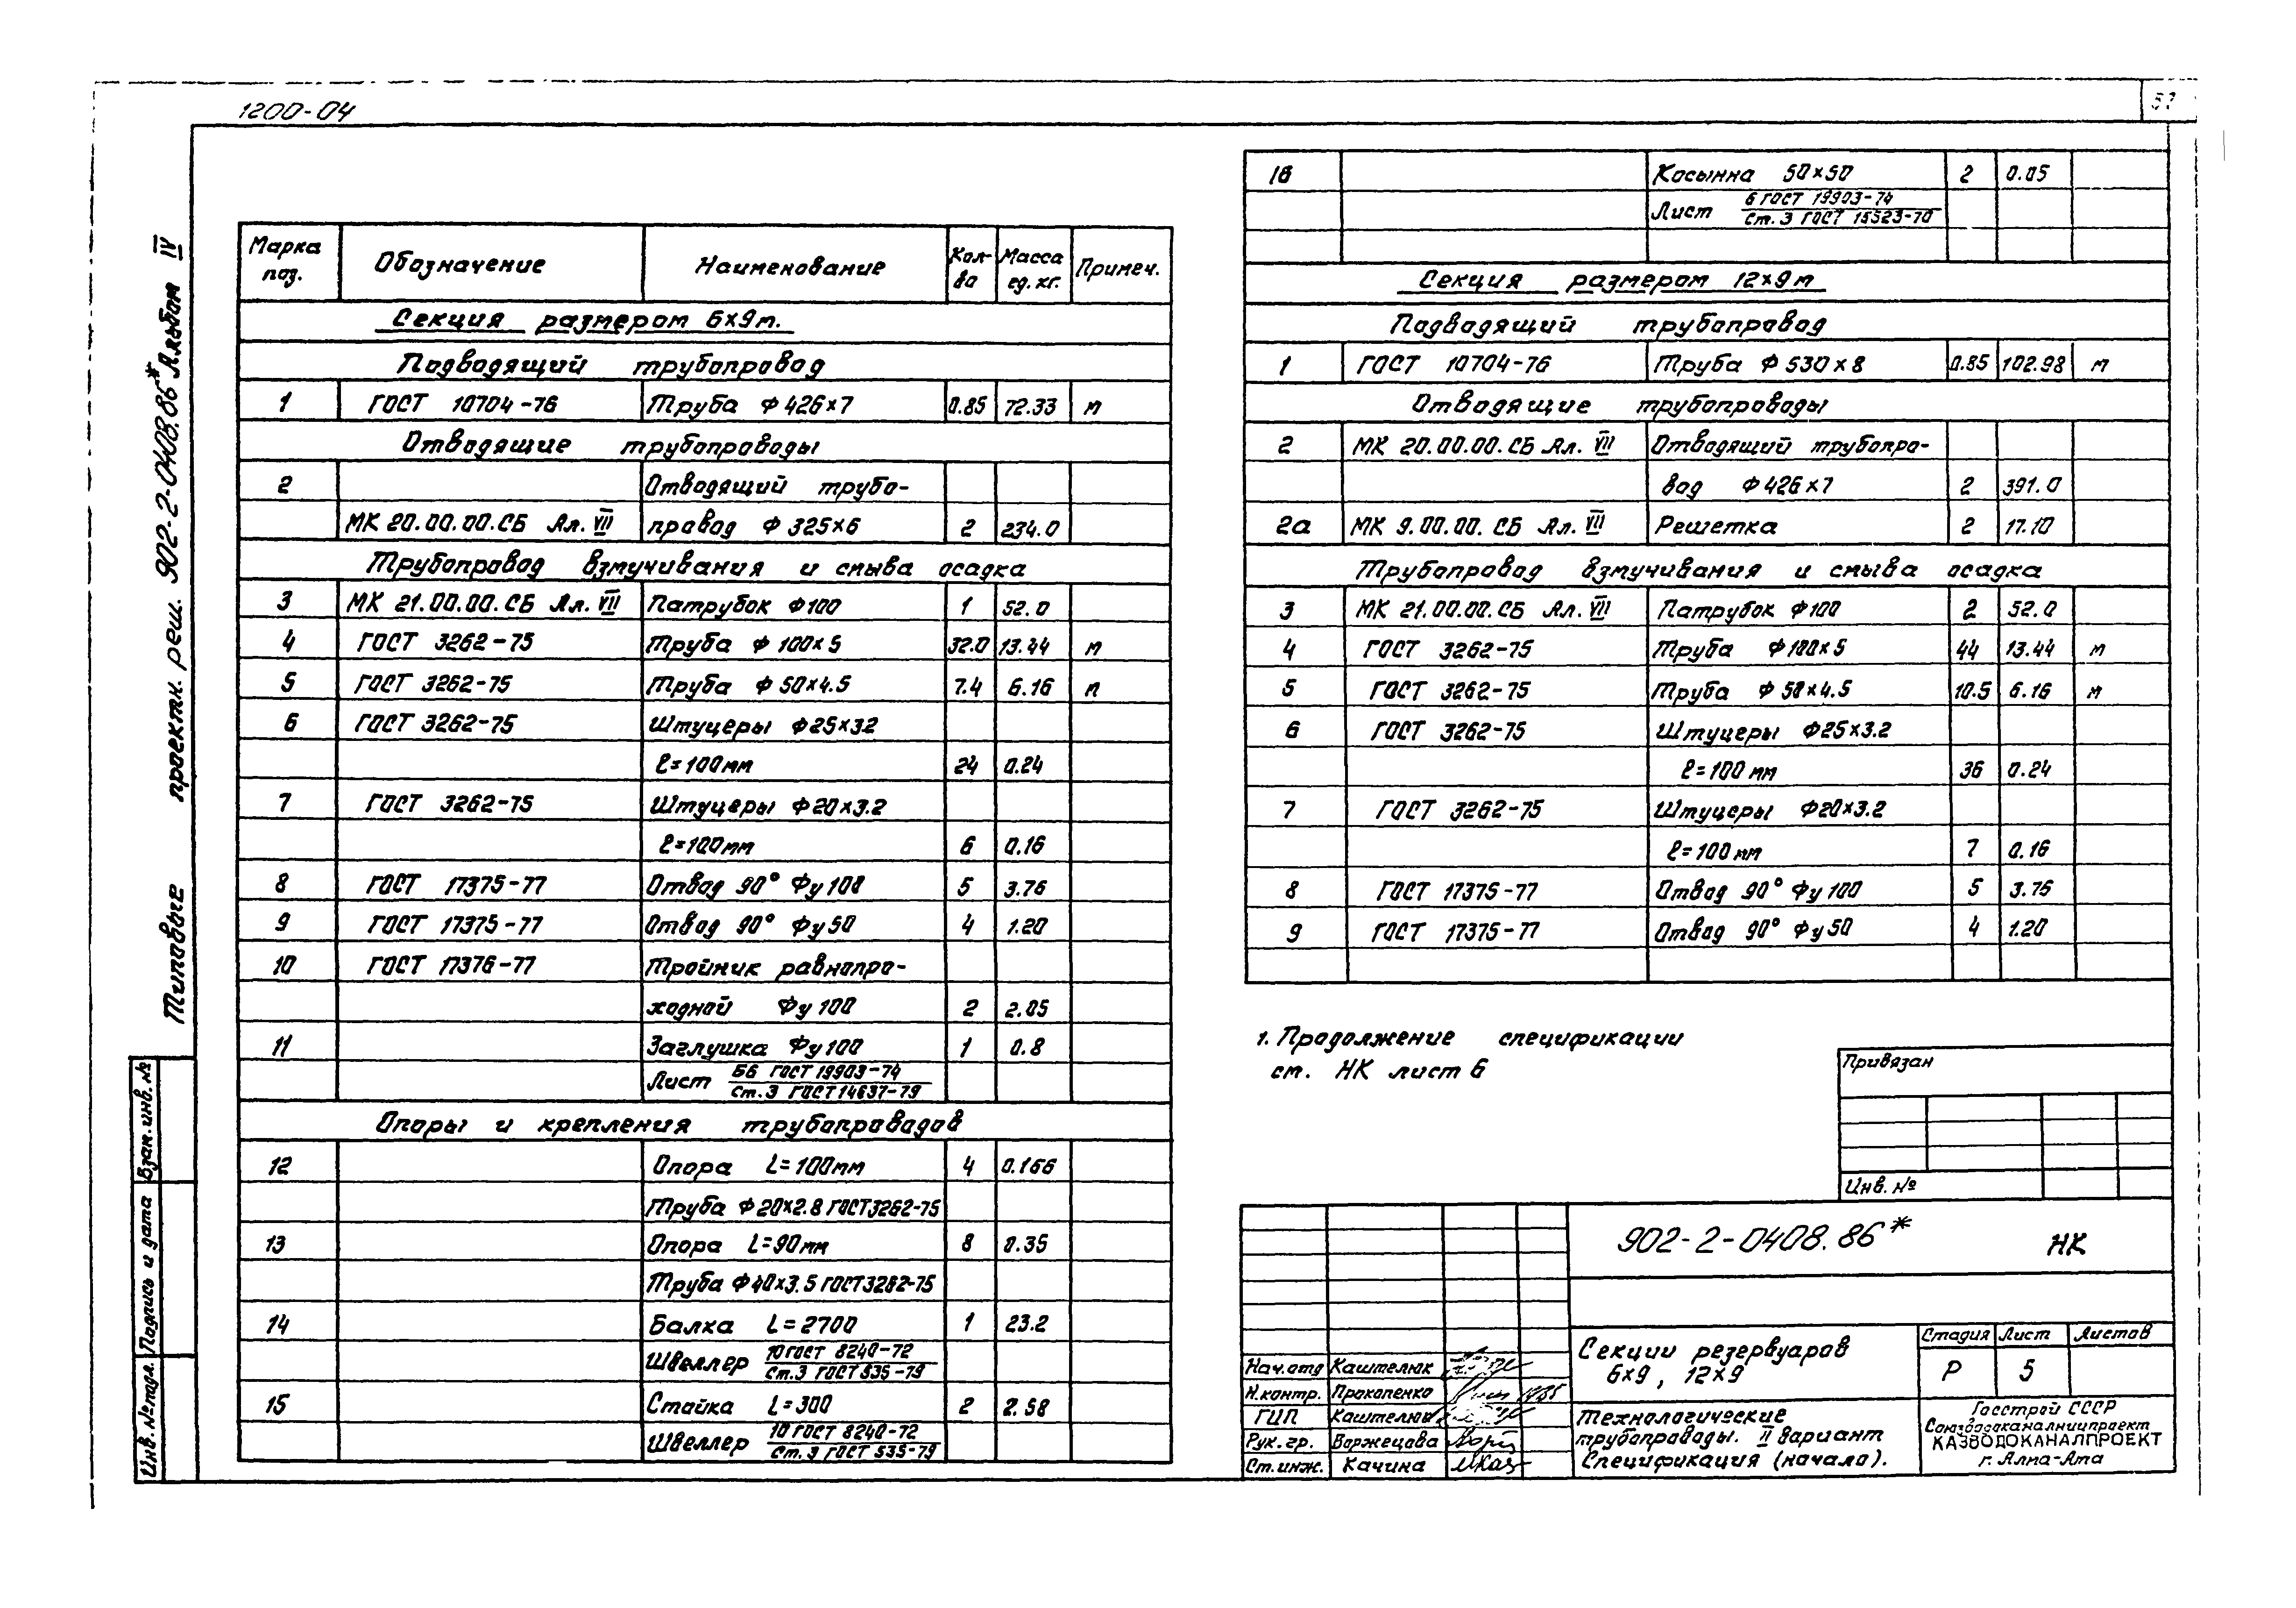 1200-04
Типовые проектн. реш. 902-2-0408.86* Альбом IV
Взам. инв. №
Подпись и дата
Инв. № подл.
Марка поз. Обозначение Наименование Кол-ва Масса ед. кг. Примеч.
Секция размером 6×9м.
Подводящий трубопровод
1 ГОСТ 10704-76 Труба Ф426×7 0.85 72.33 м
Отводящие трубопроводы
2 Отводящий трубо-
МК 20.00.00.СБ Ал. VII провод Ф325×6 2 234.0
Трубопровод взмучивания и смыва осадка
3 МК 21.00.00.СБ Ал. VII Патрубок Ф100 1 52.0
4 ГОСТ 3262-75 Труба Ф100×5 32.0 13.44 м
5 ГОСТ 3262-75 Труба Ф50×4.5 7.4 6.16 м
6 ГОСТ 3262-75 Штуцеры Ф25×32
ℓ=100мм 24 0.24
7 ГОСТ 3262-75 Штуцеры Ф20×3.2
ℓ=100мм 6 0.16
8 ГОСТ 17375-77 Отвод 90° Фу100 5 3.76
9 ГОСТ 17375-77 Отвод 90° Фу50 4 1.20
10 ГОСТ 17376-77 Тройник равнопро-
ходной Фу100 2 2.05
11 Заглушка Фу100 1 0.8
Лист Б6 ГОСТ 19903-74
Ст.3 ГОСТ 14637-79
Опоры и крепления трубопроводов
12 Опора L=100мм 4 0.166
Труба Ф20×2.8 ГОСТ3262-75
13 Опора L=90мм 8 0.35
Труба Ф40×3.5 ГОСТ3262-75
14 Балка L=2700 1 23.2
Швеллер 10 ГОСТ 8240-72
Ст.3 ГОСТ 535-79
15 Стойка L=300 2 2.58
Швеллер 10 ГОСТ 8240-72
Ст.3 ГОСТ 535-79
16 Косынка 50×50 2 0.05
Лист 6 ГОСТ 19903-74
Ст.3 ГОСТ 16523-70
Секция размером 12×9м
Подводящий трубопровод
1 ГОСТ 10704-76 Труба Ф530×8 0.85 102.98 м
Отводящие трубопроводы
2 МК 20.00.00.СБ Ал. VII Отводящий трубопро-
вод Ф426×7 2 391.0
2а МК 9.00.00.СБ Ал. VII Решетка 2 17.10
Трубопровод взмучивания и смыва осадка
3 МК 21.00.00.СБ Ал. VII Патрубок Ф100 2 52.0
4 ГОСТ 3262-75 Труба Ф100×5 44 13.44 м
5 ГОСТ 3262-75 Труба Ф50×4.5 10.5 6.16 м
6 ГОСТ 3262-75 Штуцеры Ф25×3.2
ℓ=100мм 36 0.24
7 ГОСТ 3262-75 Штуцеры Ф20×3.2
ℓ=100мм 7 0.16
8 ГОСТ 17375-77 Отвод 90° Фу100 5 3.76
9 ГОСТ 17375-77 Отвод 90° Фу50 4 1.20
1. Продолжение спецификации
см. НК лист 6
Привязан
Инв. №
902-2-0408.86* НК
Нач.отд Каштелюк
Н.контр. Прокопенко
ГИП Каштелюк
Рук. гр. Воржецова
Ст.инж. Качина
Секции резервуаров
6×9, 12×9
Стадия Лист Листов
Р 5
Технологические
трубопроводы. II вариант
Спецификация (начало).
Госстрой СССР
Союзводоканалниипроект
КАЗВОДОКАНАЛПРОЕКТ
г. Алма-Ата